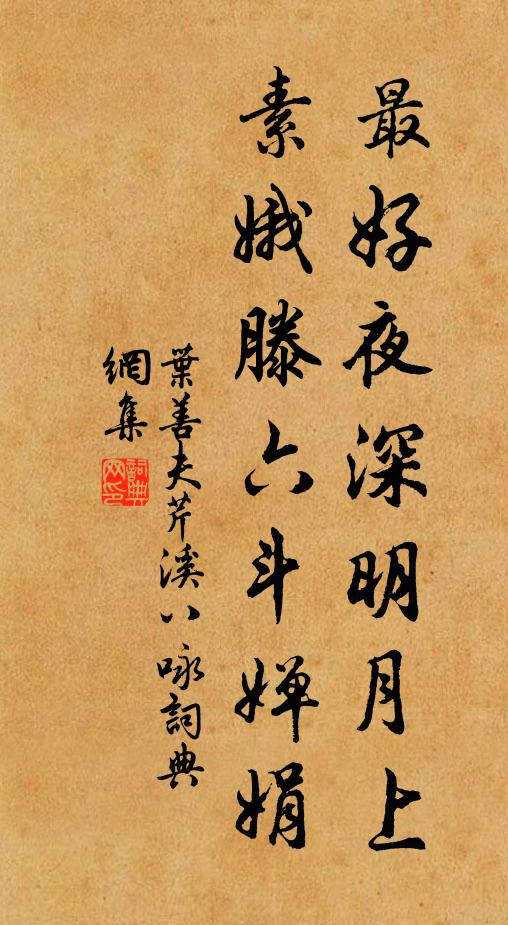 最好夜深明月上
素娥滕六斗婵娟
葉善夫芹溪八咏詞典
網集
詞典
网印